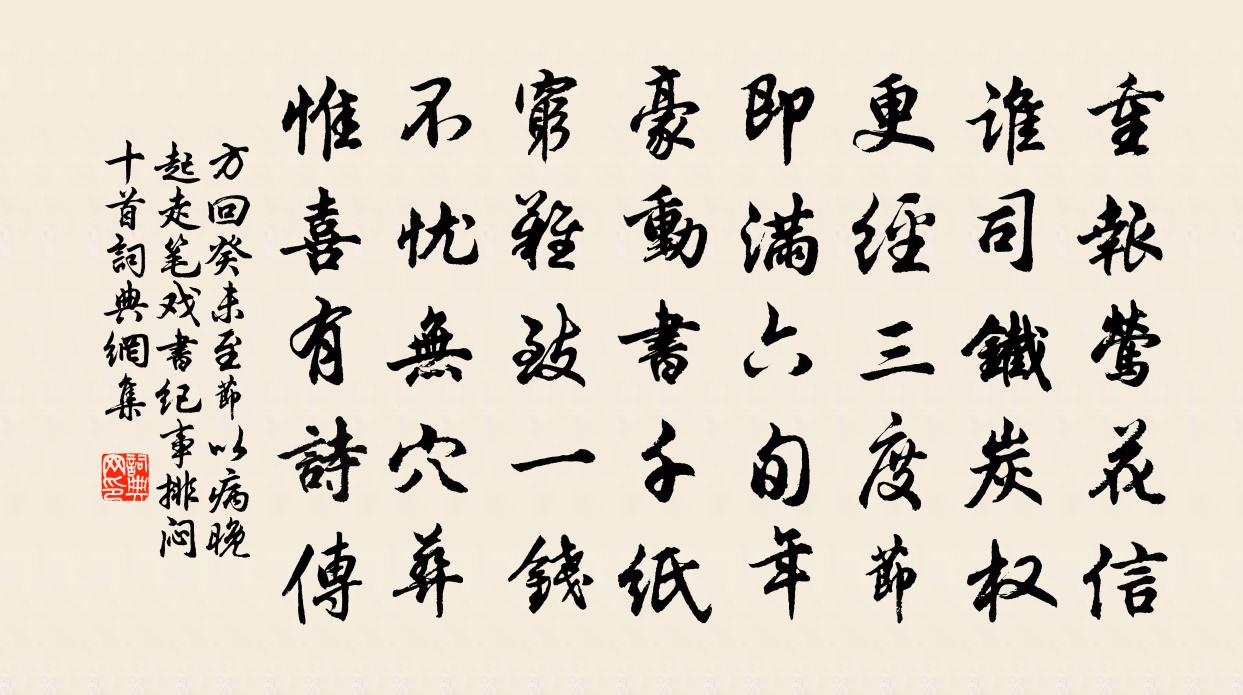 重報鶯花信
谁司鐵炭权
更經三度節
即滿六旬年
豪動書千紙
窮難致一錢
不忧無穴葬
惟喜有詩傳
方回癸未至節以病晚
起走笔戏書纪事排闷
十首詞典網集
詞典网印